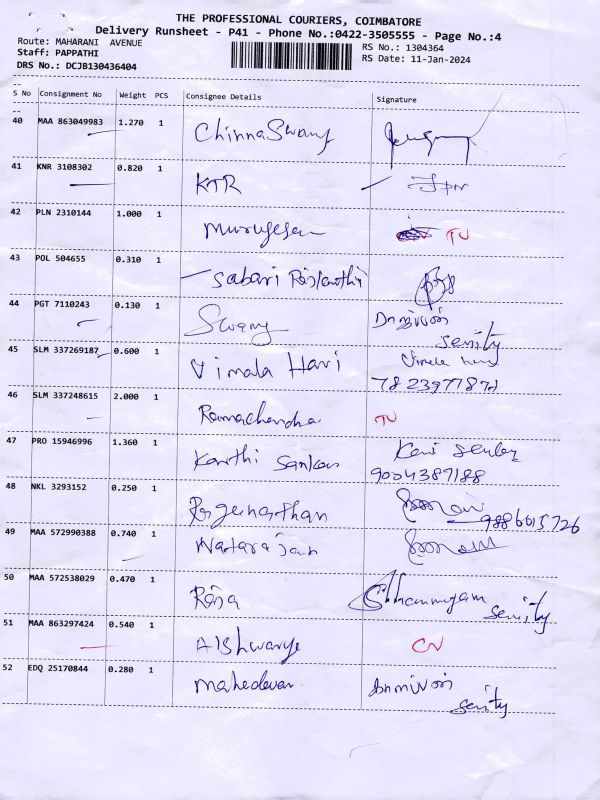 THE PROFESSIONAL COURIERS, COIMBATORE
Delivery Runsheet - P41 - Phone No.:0422-3505555 - Page No.:4
Route: MAHARANI AVENUE
RS No.: 1304364
Staff: PAPPATHI
RS Date: 11-Jan-2024
DRS No.: DCJB130436404
S No Consignment No Weight PCS Consignee Details Signature
40 MAA 863049983 1.270 1 ChinnaSwamy
41 KNR 3108302 0.820 1 KTR
42 PLN 2310144 1.000 1 Murugesan TU
43 POL 504655 0.310 1 Sabari
44 PGT 7110243 0.130 1 Swamy
senity
45 SLM 337269187 0.600 1 Vimala Hari
46 SLM 337248615 2.000 1 Ramachandra TU
47 PRO 15946996 1.360 1 Karthi Sankar
48 NKL 3293152 0.250 1
9886615726
49 MAA 572990388 0.740 1 Natarajan
50 MAA 572538029 0.470 1 Raja Shanmugam
senity
51 MAA 863297424 0.540 1 Aishwarye CN
52 EDQ 25170844 0.280 1 Mahadevan
senity